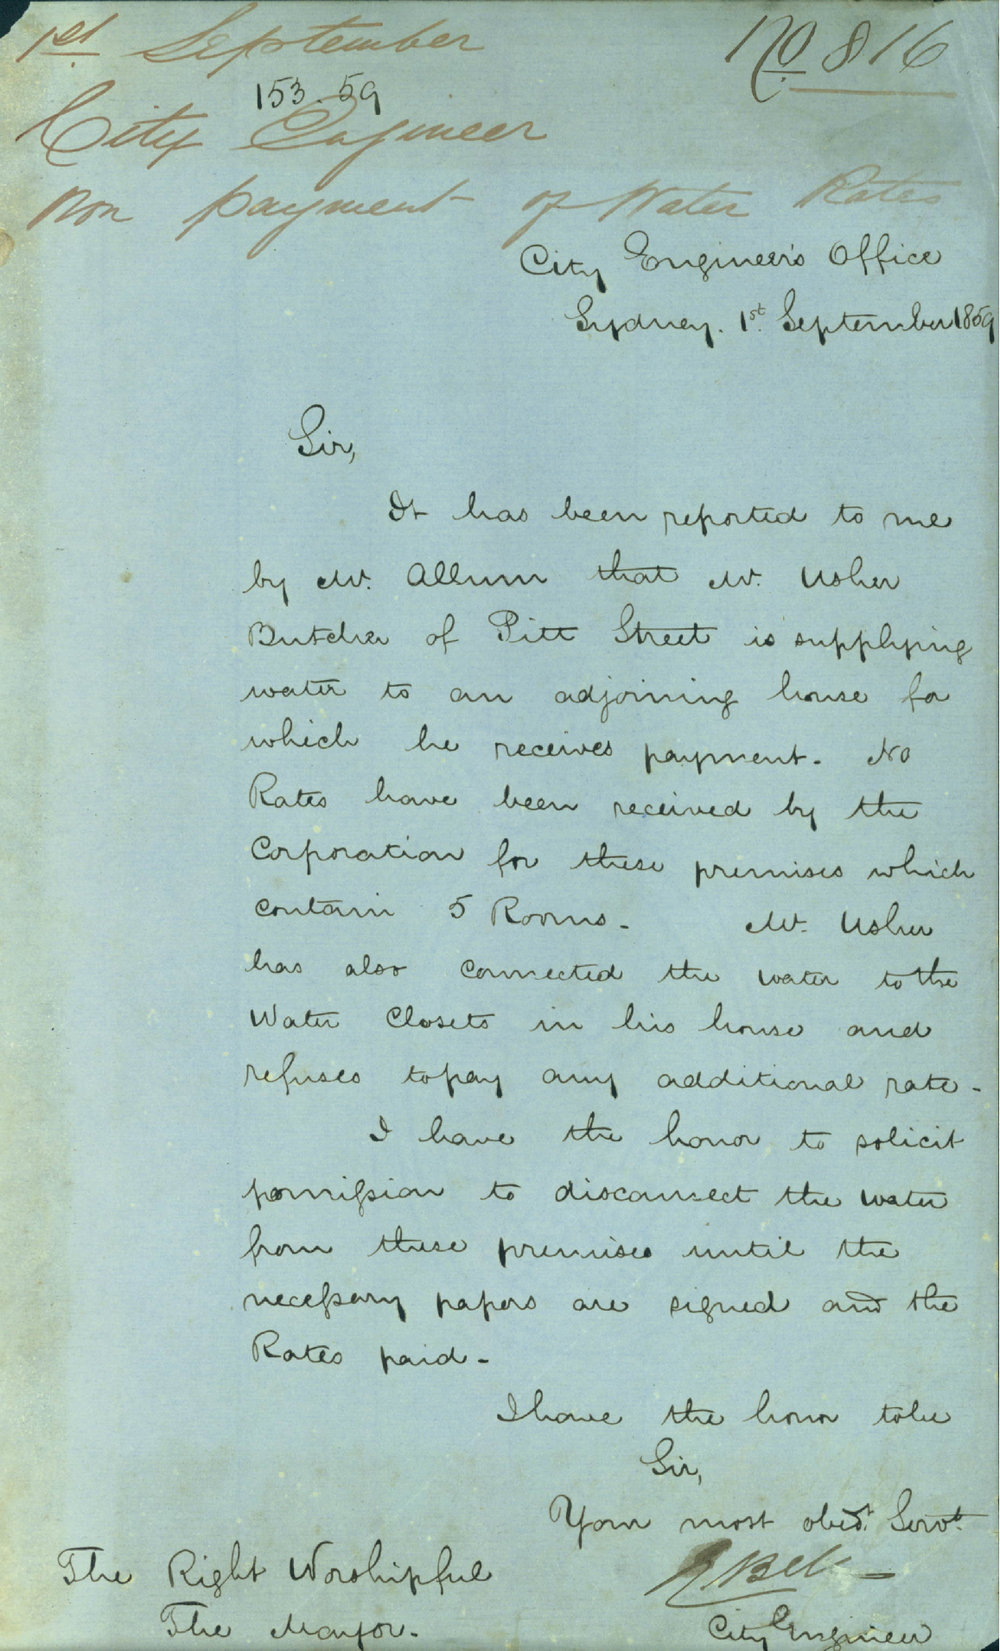 1st September
No 816
153.59
City Engineer
Non payment of Water Rates
City Engineer's Office
Sydney. 1st. September 1859
Sir,
It has been reported to me
by Mr. Allum that Mr. Usher
Butcher of Pitt Street is supplying
water to an adjoining house for
which he receives payment. No
Rates have been received by the
Corporation for these premises which
contain 5 Rooms. Mr. Usher
has also connected the water to the
Water Closets in his house and
refuses to pay any additional rate.
I have the honor to solicit
permission to disconnect the water
from these premises until the
necessary papers are signed and the
Rates paid.
I have the honor to be
Sir,
Your most obedt. Servt.
E Bell
The Right Worshipful
The Mayor.
City Engineer